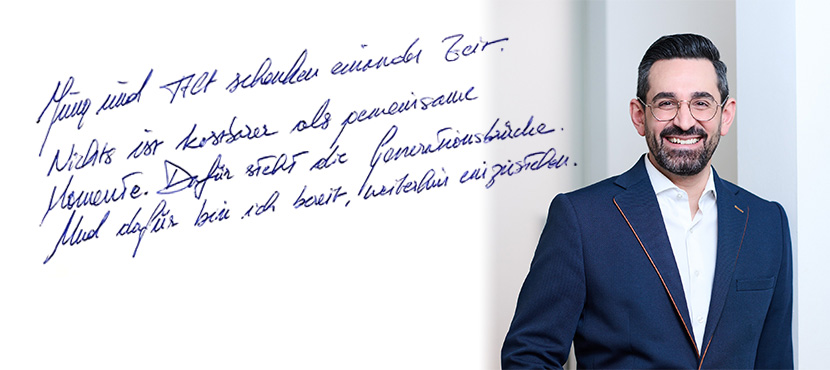 Jung und Alt schenken einander Zeit.
Nichts ist kostbarer als gemeinsame
Momente. Dafür steht die Generationsbrücke.
Und dafür bin ich bereit, weiterhin einzustehen.